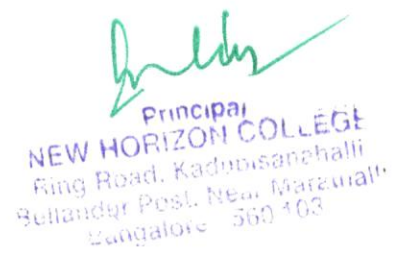 Principal
NEW HORIZON COLLEGE
Ring Road, Kadubisanahalli
Bellandur Post, Near Marathalli
Bangalore - 560 103